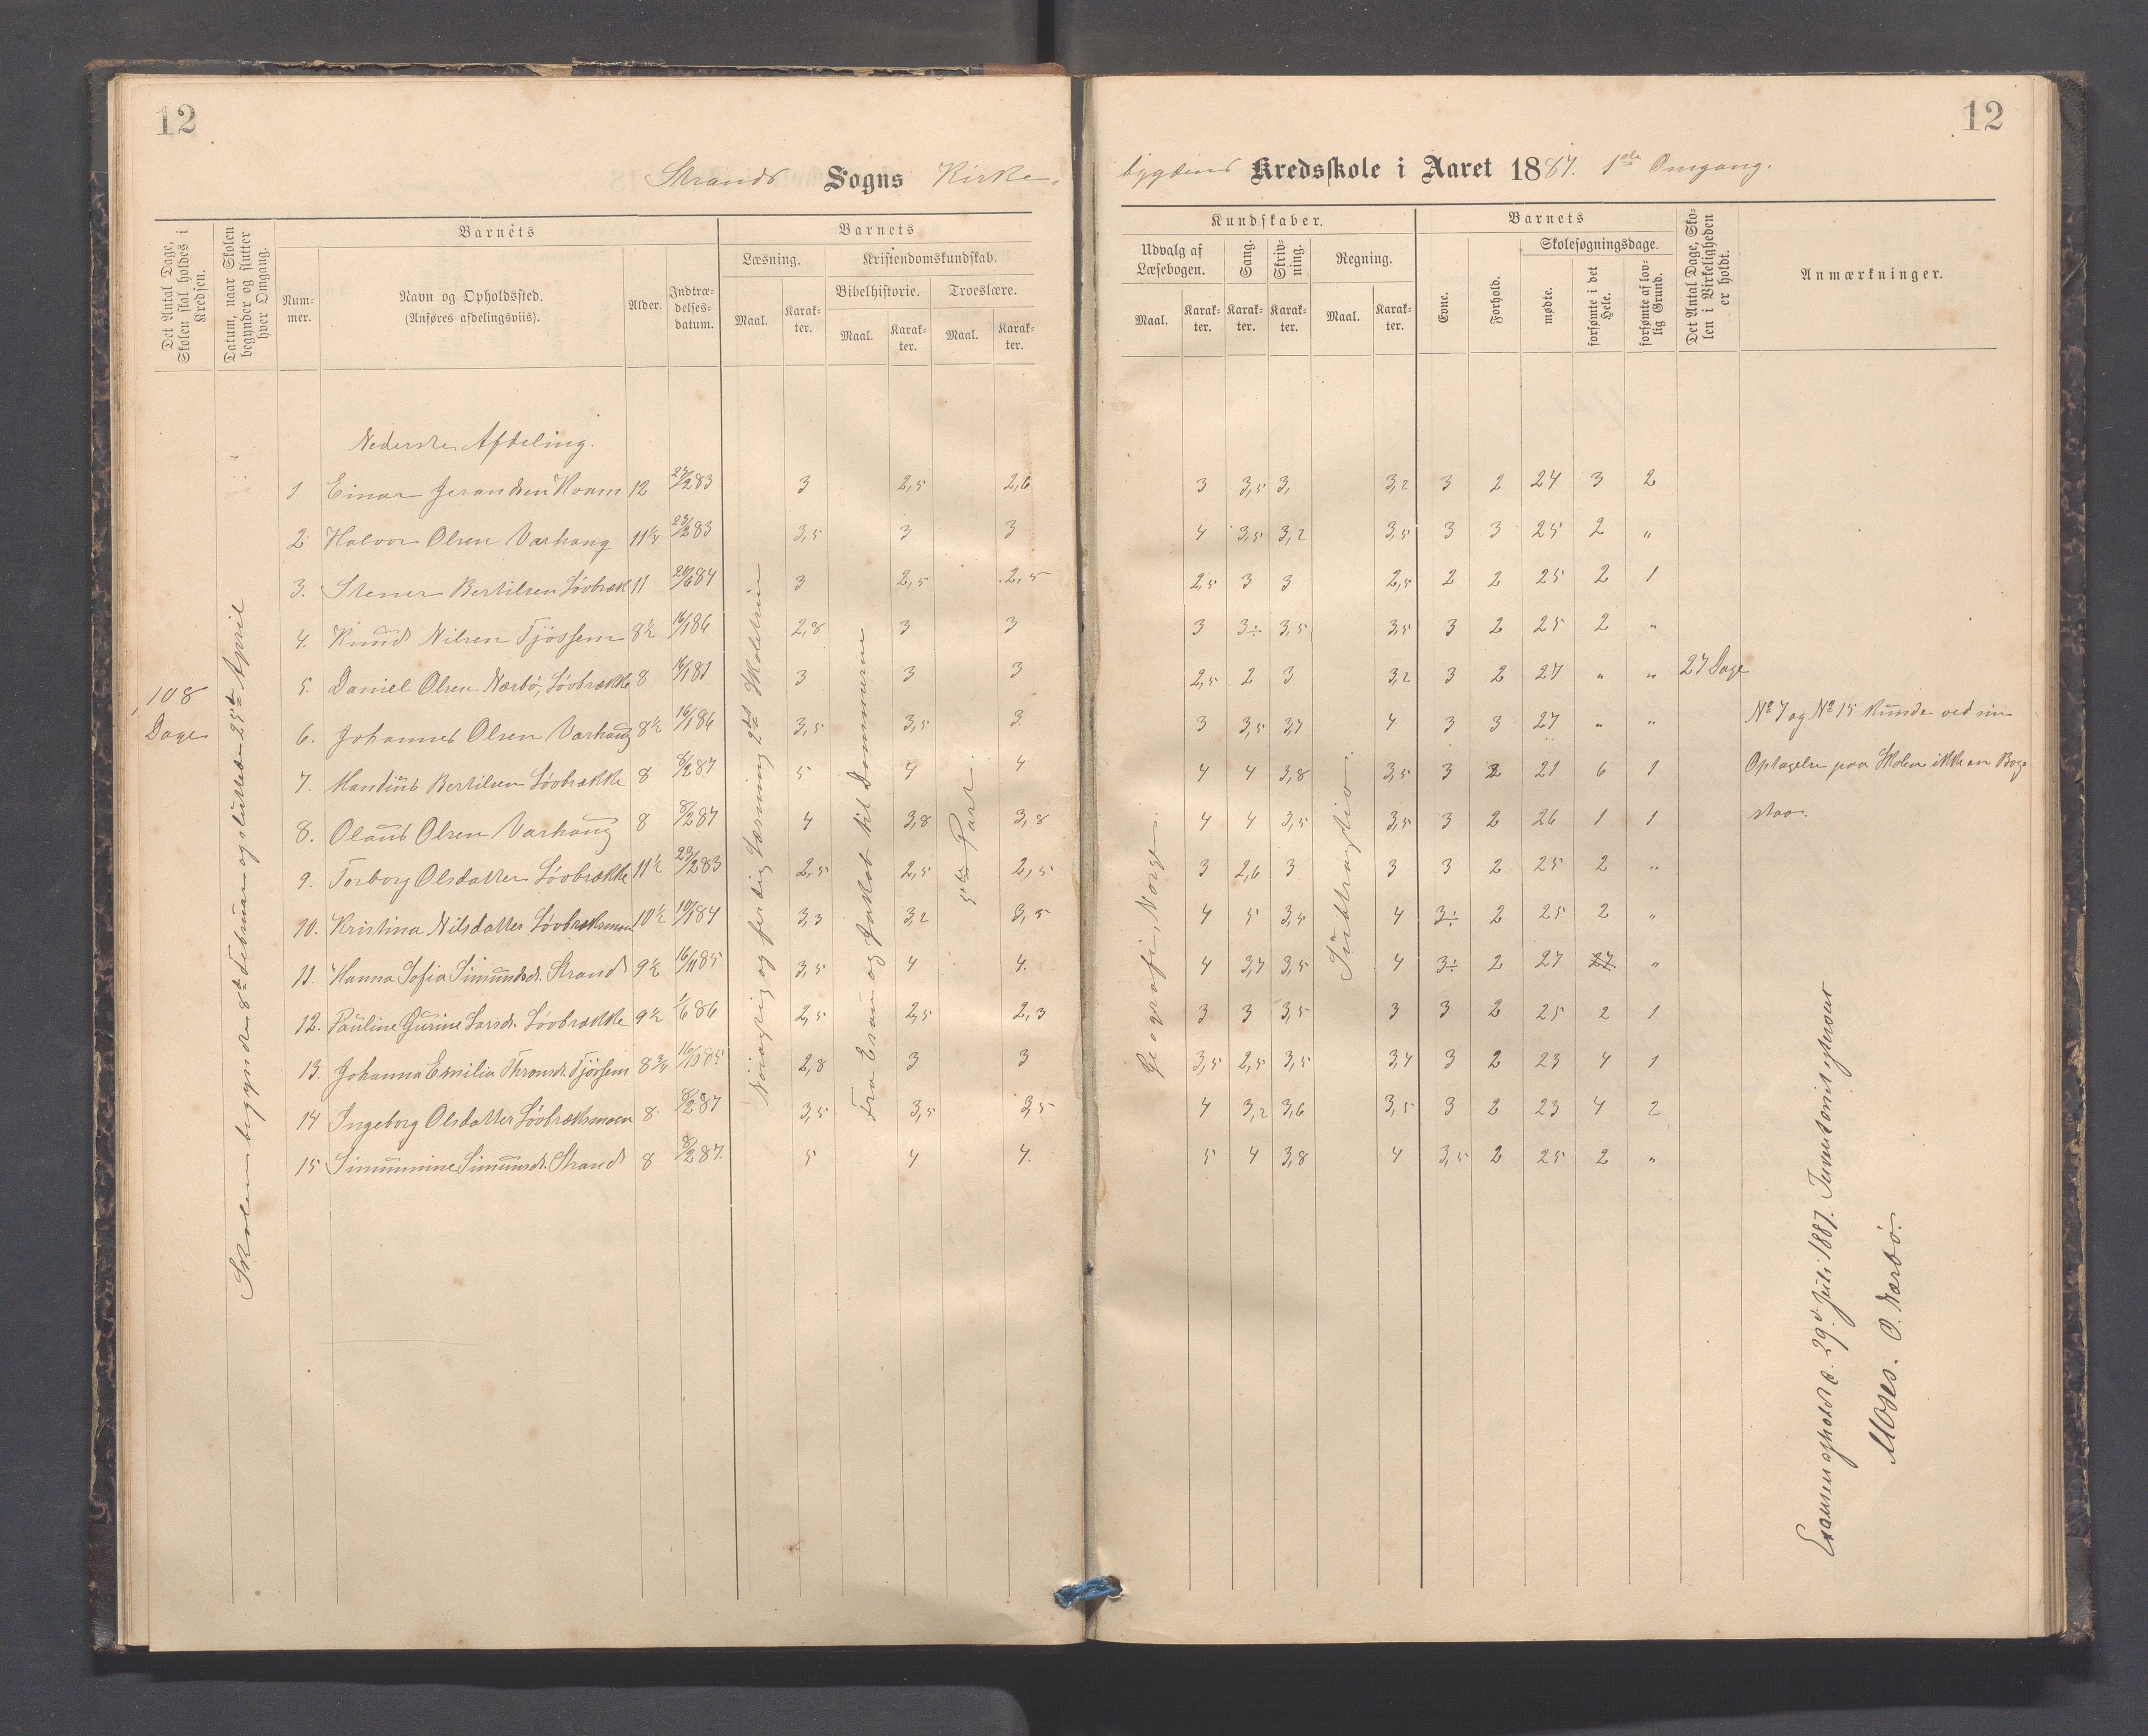 12
12
Strands Sogns Kirke-
bygdens Kredsskole i Aaret 1887. 1ste Omgang.
Det Antal Dage, Skolen skal holdes i Kredsen.
Datum, naar Skolen begynder og slutter hver Omgang.
Barnets
Num-mer.
Navn og Opholdssted.
(Anføres afdelingsviis).
Alder.
Indtræ-delses-datum.
Barnets
Læsning.
Kristendomskundskab.
Bibelhistorie.
Troeslære.
Maal.
Karak-ter.
Maal.
Karak-ter.
Maal.
Karak-ter.
Kundskaber.
Udvalg af Læsebogen.
Sang.
Skriv-ning.
Regning.
Maal.
Karak-ter.
Karak-ter.
Karak-ter.
Maal.
Karak-ter.
Barnets
Evne.
Forhold.
Skolesøgningsdage.
mødte.
forsømte i det Hele.
forsømte af lov-lig Grund.
Det Antal Dage, Sko-len i Virkeligheden er holdt.
Anmærkninger.
Nederste Afdeling.
1 Einar 12 22/2 83 3 2,5 2,6 3 3,5 3, 3,2 3 2 24 3 2
2 Halvor Olsen Varhaug 11 1/4 23/2 83 3,5 3 3 4 3,5 3,2 3,5 3 3 25 2 "
3. Stener Bertilsen Lövbræk 11 20/6 84 3 2,5 2,5 2,5 3 3 2,5 2 2 25 2 1
4. Knud Nilsen Tjössem 8 1/2 16/1 86 2,8 3 3 3 3÷ 3,5 3,5 3 2 25 2 "
5. Daniel Olsen Nærbö, Lövbrække 8 3 3 3 2,5 2 3 3,2 3 2 27 " " 27 Dage
108 Dage
6. Johannes Olsen Varhaug 8 1/2 16/1 86 3,5 3,5 3 3 3,5 3,7 4 3 3 27 " "
7. Bertilsen Lövbrække 8 8/2 87 5 4 4 4 4 3,8 3,5 3 2 21 6 1
8. Olaus Olsen Varhaug 8 8/2 87 4 3,8 3,8 4 4 3,5 3,5 3 2 26 1 1
9. Torborg Olsdatter Lövbrække 11 1/2 23/2 83 2,5 2,5 2,5 3 2,6 3 3 3 2 25 2 "
10. Kristina Nilsdatter Lövbræksmoen 10 1/2 84 3,3 3,2 3,5 4 5 3,5 4 3÷ 2 25 2 "
11. Hanna Sofia Simundsdr. Strand 9 1/2 16/11 85 3,5 4 4. 4 3,7 3,5 4 3÷ 2 27 27 "
12. Pauline Gurine Larsdr. Lövbrække 9 1/2 1/6 86 2,5 2,5 2,3 3 3 3,5 3 3 2 25 2 1
13. Johanna Emilia Tjössem 8 3/4 2,8 3 3 3,5 2,5 3,5 3,4 3 2 23 4 1
14 Ingeborg Olsdatter Lövbræksmoen 8 8/2 87 3,5 3,5 3,5 4 3,2 3,6 3,5 3 2 23 4 2
15 Simunnine Simunsdr. Strand 8 8/2 87. 5 4 4. 5 4 3,8 4 3,5 2 25 2 "
Skolen begyndte 8de Februar og sluttede 25de April
Nöiagtig og ferdig Læsning 2det Skoletrin
Fra Esau og Jakob til Dommerne
5te Part.
Geografi, Norge.
Subtraktion.
No 7 og No 15 kunde ved sin
Optagelse paa Skolen ikke en Bog-
stav.
Examen afholdt d. 29de Juli 1887.
Moses. O. Nærbö.